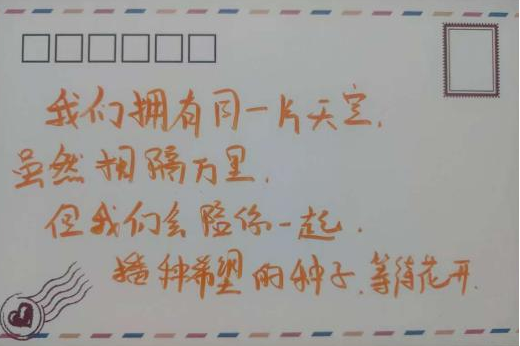 我们拥有同一片天空,
虽然相隔万里,
但我们会陪你一起,
播种希望的种子,等待花开.